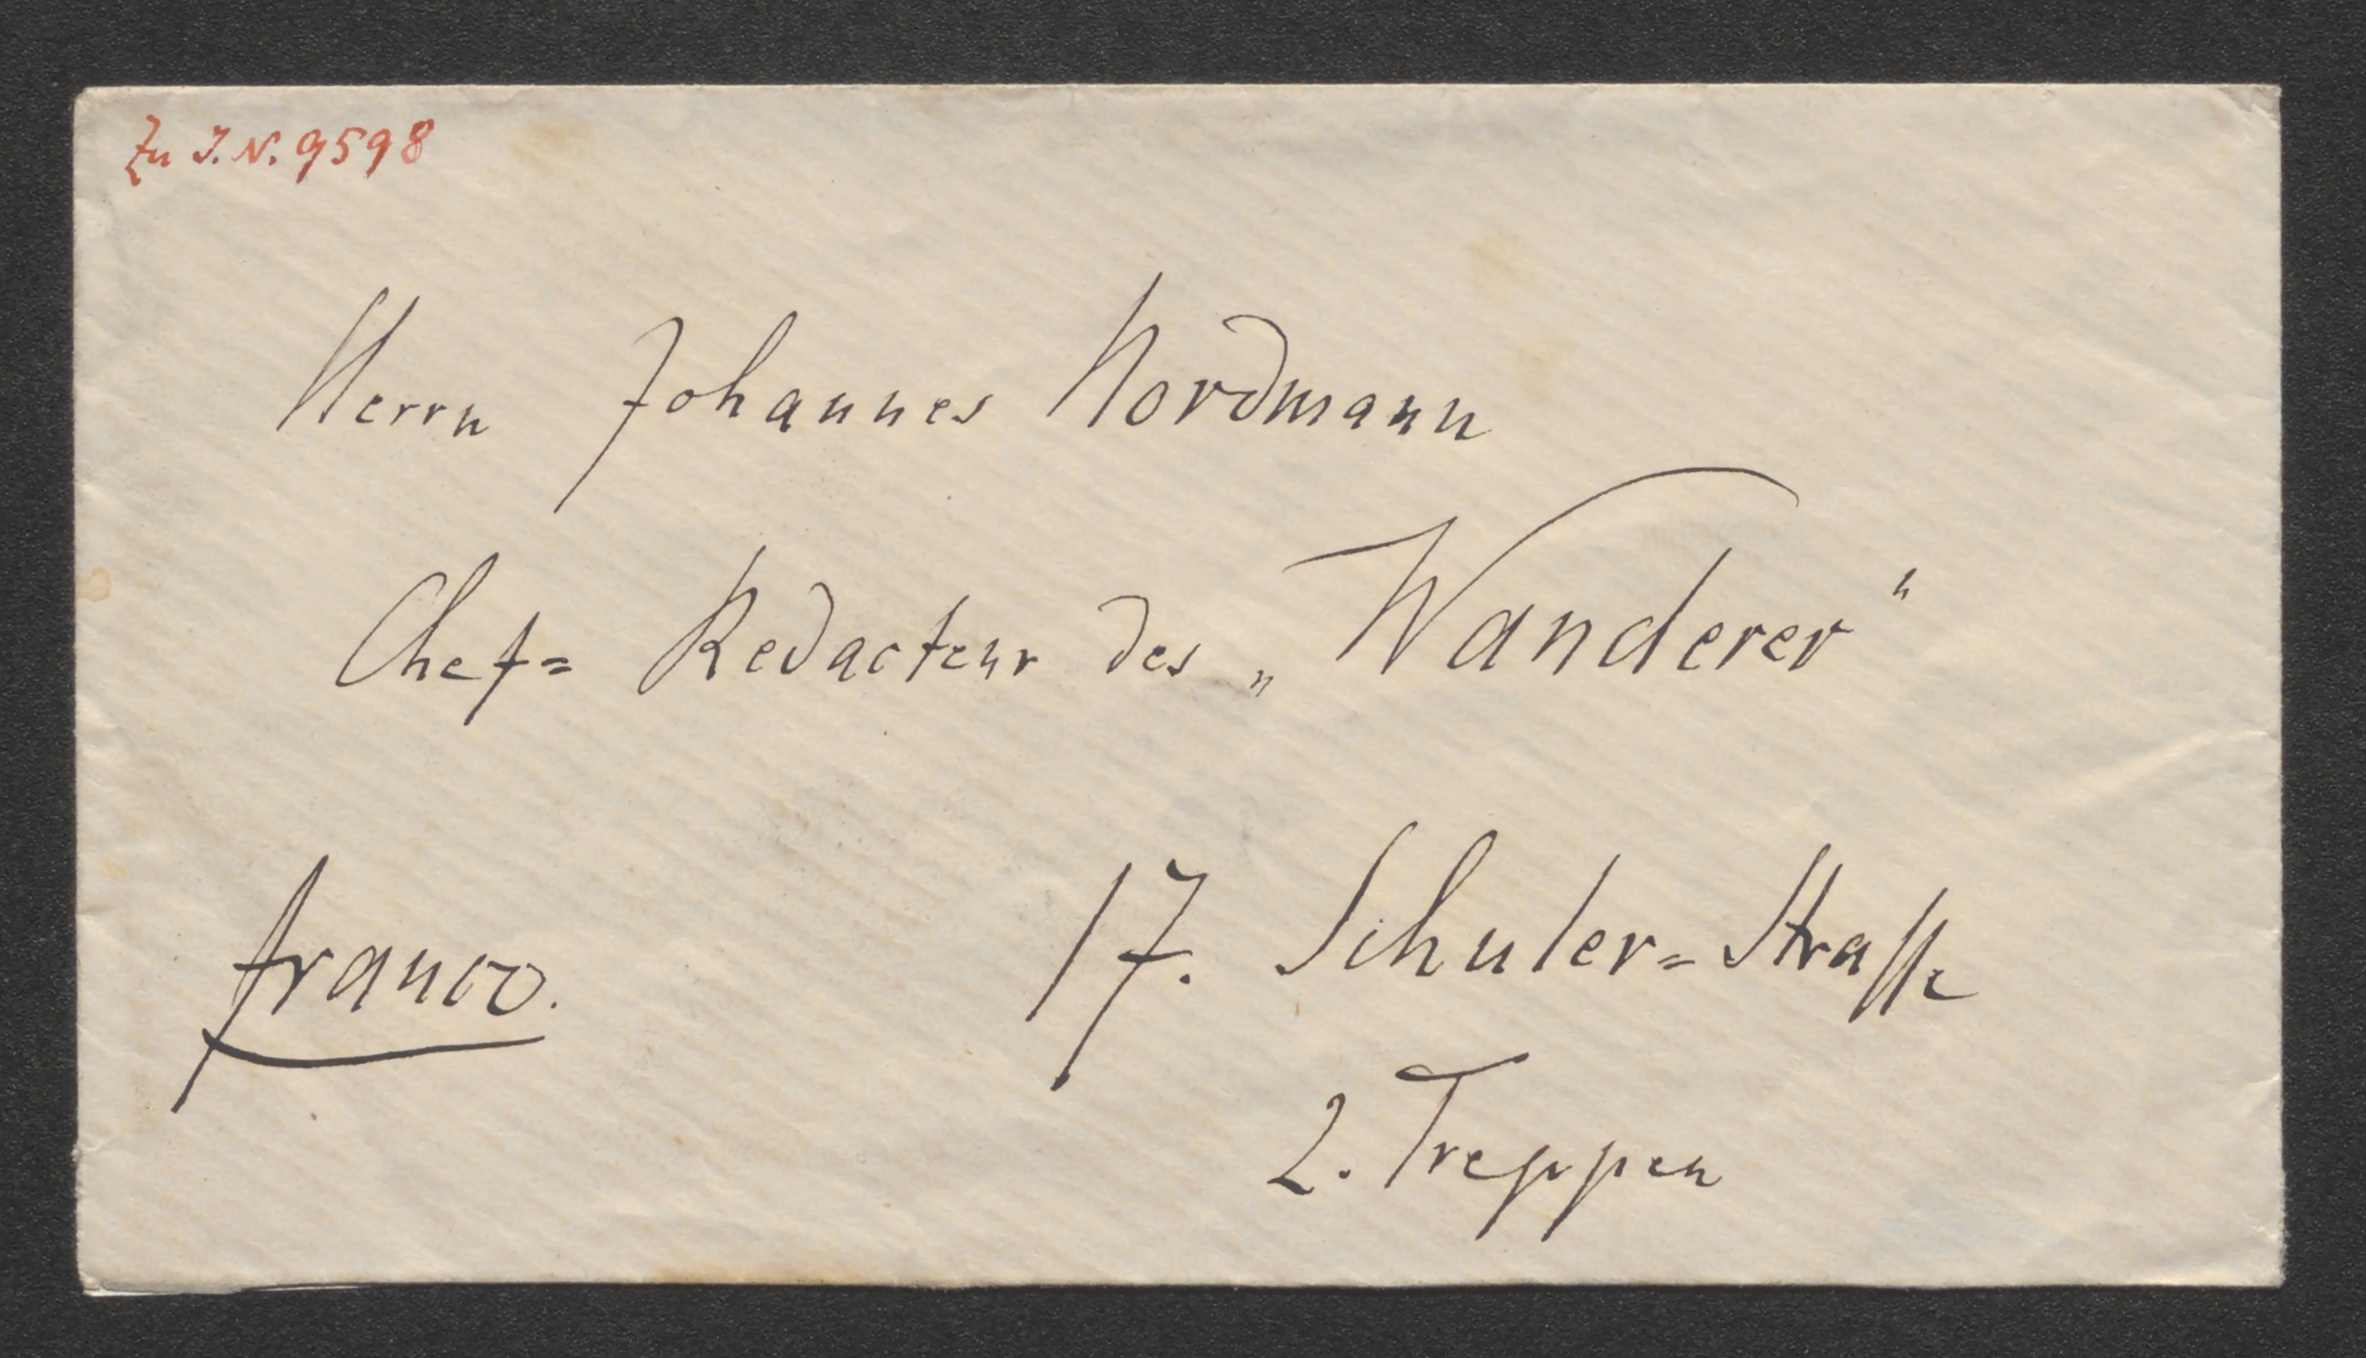 Zu I.N. 9598
Herrn Johannes Nordmann
Chef= Redacteur des „Wanderer“
franco. 17. Schuler=Strasse
2. Treppen